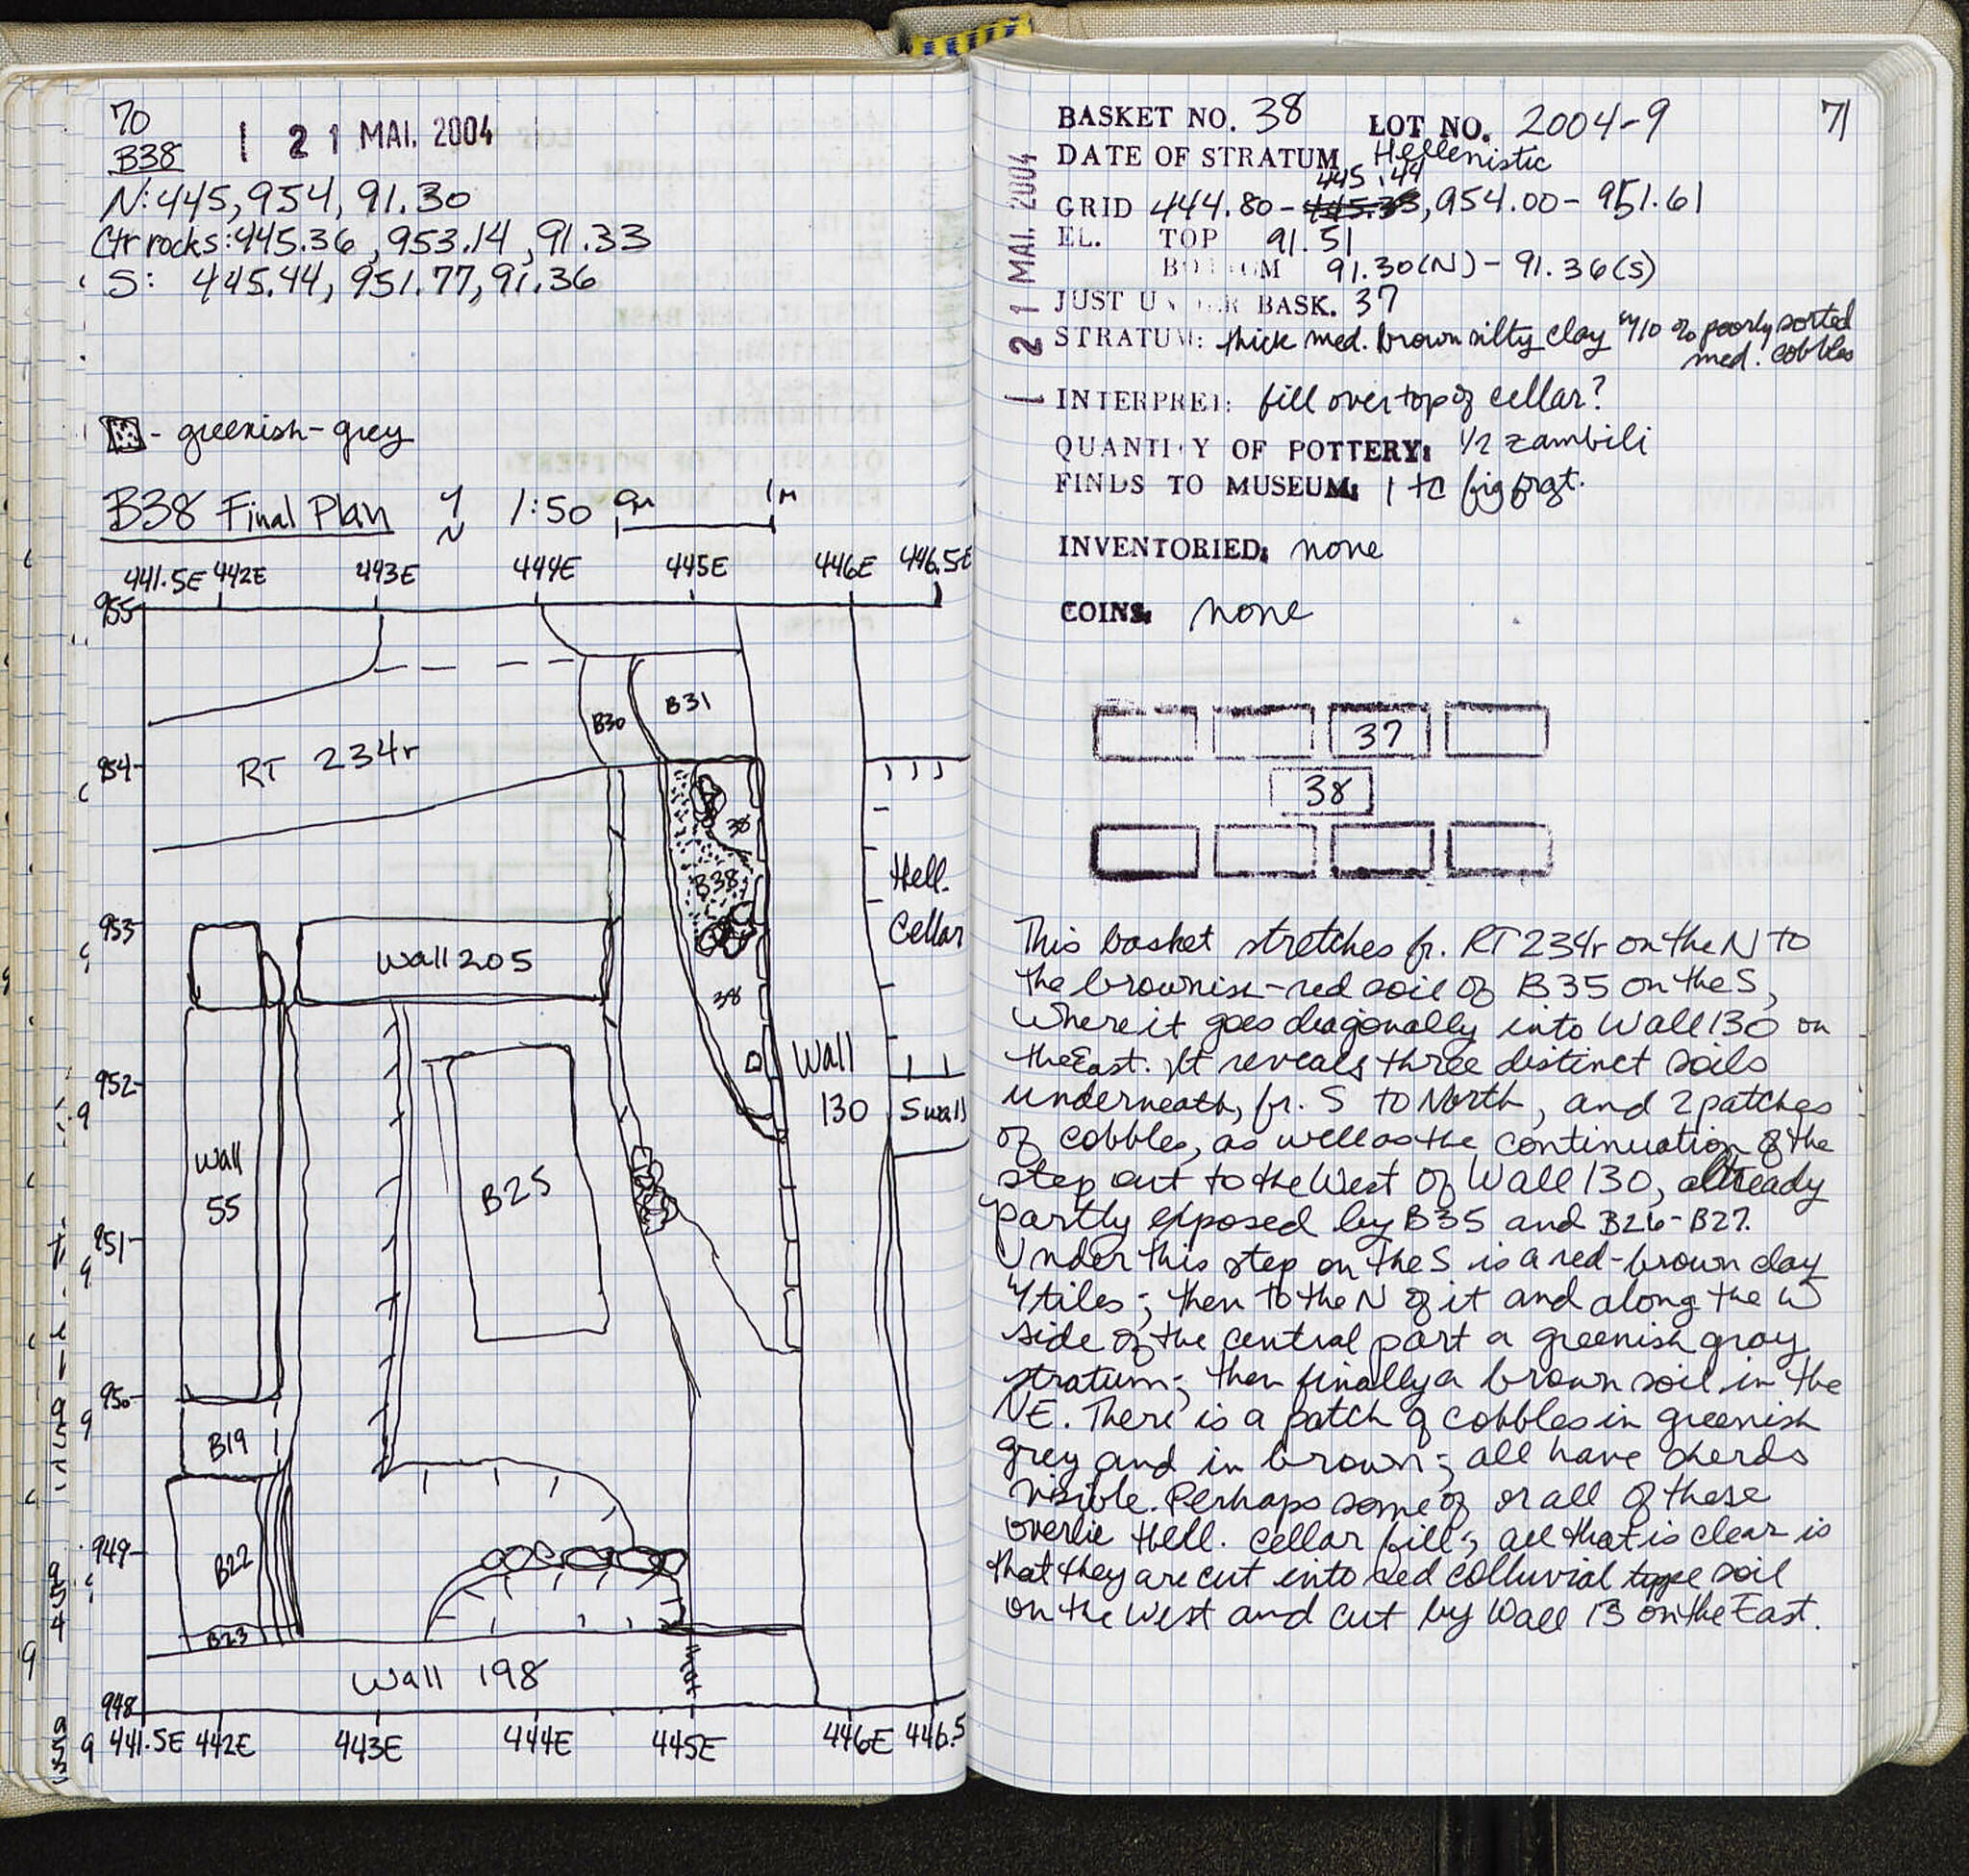 70
B38
1 2 1 MAI. 2004
N: 445, 954, 91.30
Ctr rocks: 445.36, 953.14, 91.33
S: 445.44, 951.77, 91.36
- greenish-grey
B38 Final Plan N 1:50 0m 1m
441.5E 442E 493E 444E 445E 446E 446.5E
955
B30 B31
RT 234r
954
38
B38
Hell.
Cellar
953
Wall 205
38
952
Wall
130
S wall
Wall
55
B25
951
950
B19
949
B22
B23
Wall 198
948
441.5E 442E 443E 444E 445E 446E 446.5
71
1 2 1 MAI. 2004
BASKET NO. 38 LOT NO. 2004-9
DATE OF STRATUM Hellenistic
445.44
GRID 444.80 - 445.33, 954.00 - 951.61
EL. TOP 91.51
BOTTOM 91.30(N) - 91.36(S)
JUST UNDER BASK. 37
STRATUM: thick med. brown silty clay w/10 % poorly sorted
med. cobbles
INTERPRET: fill over top of cellar?
QUANTITY OF POTTERY: 1/2 zambili
FINDS TO MUSEUM: 1 tc fig frgt.
INVENTORIED: none
COINS: none
37
38
This basket stretches fr. RT 234r on the N to
the brownish-red soil of B35 on the S,
where it goes diagonally into Wall 130 on
the East. It reveals three distinct soils
underneath, fr. S to North, and 2 patches
of cobbles, as well as the continuation of the
step out to the West of Wall 130, already
partly exposed by B35 and B26-B27.
Under this step on the S is a red-brown clay
w/tiles; then to the N of it and along the W
side of the central part a greenish gray
stratum; then finally a brown soil in the
NE. There is a patch of cobbles in greenish
grey and in brown; all have sherds
visible. Perhaps some of or all of these
overlie Hell. cellar fill; all that is clear is
that they are cut into red colluvial type soil
on the West and cut by Wall 13 on the East.